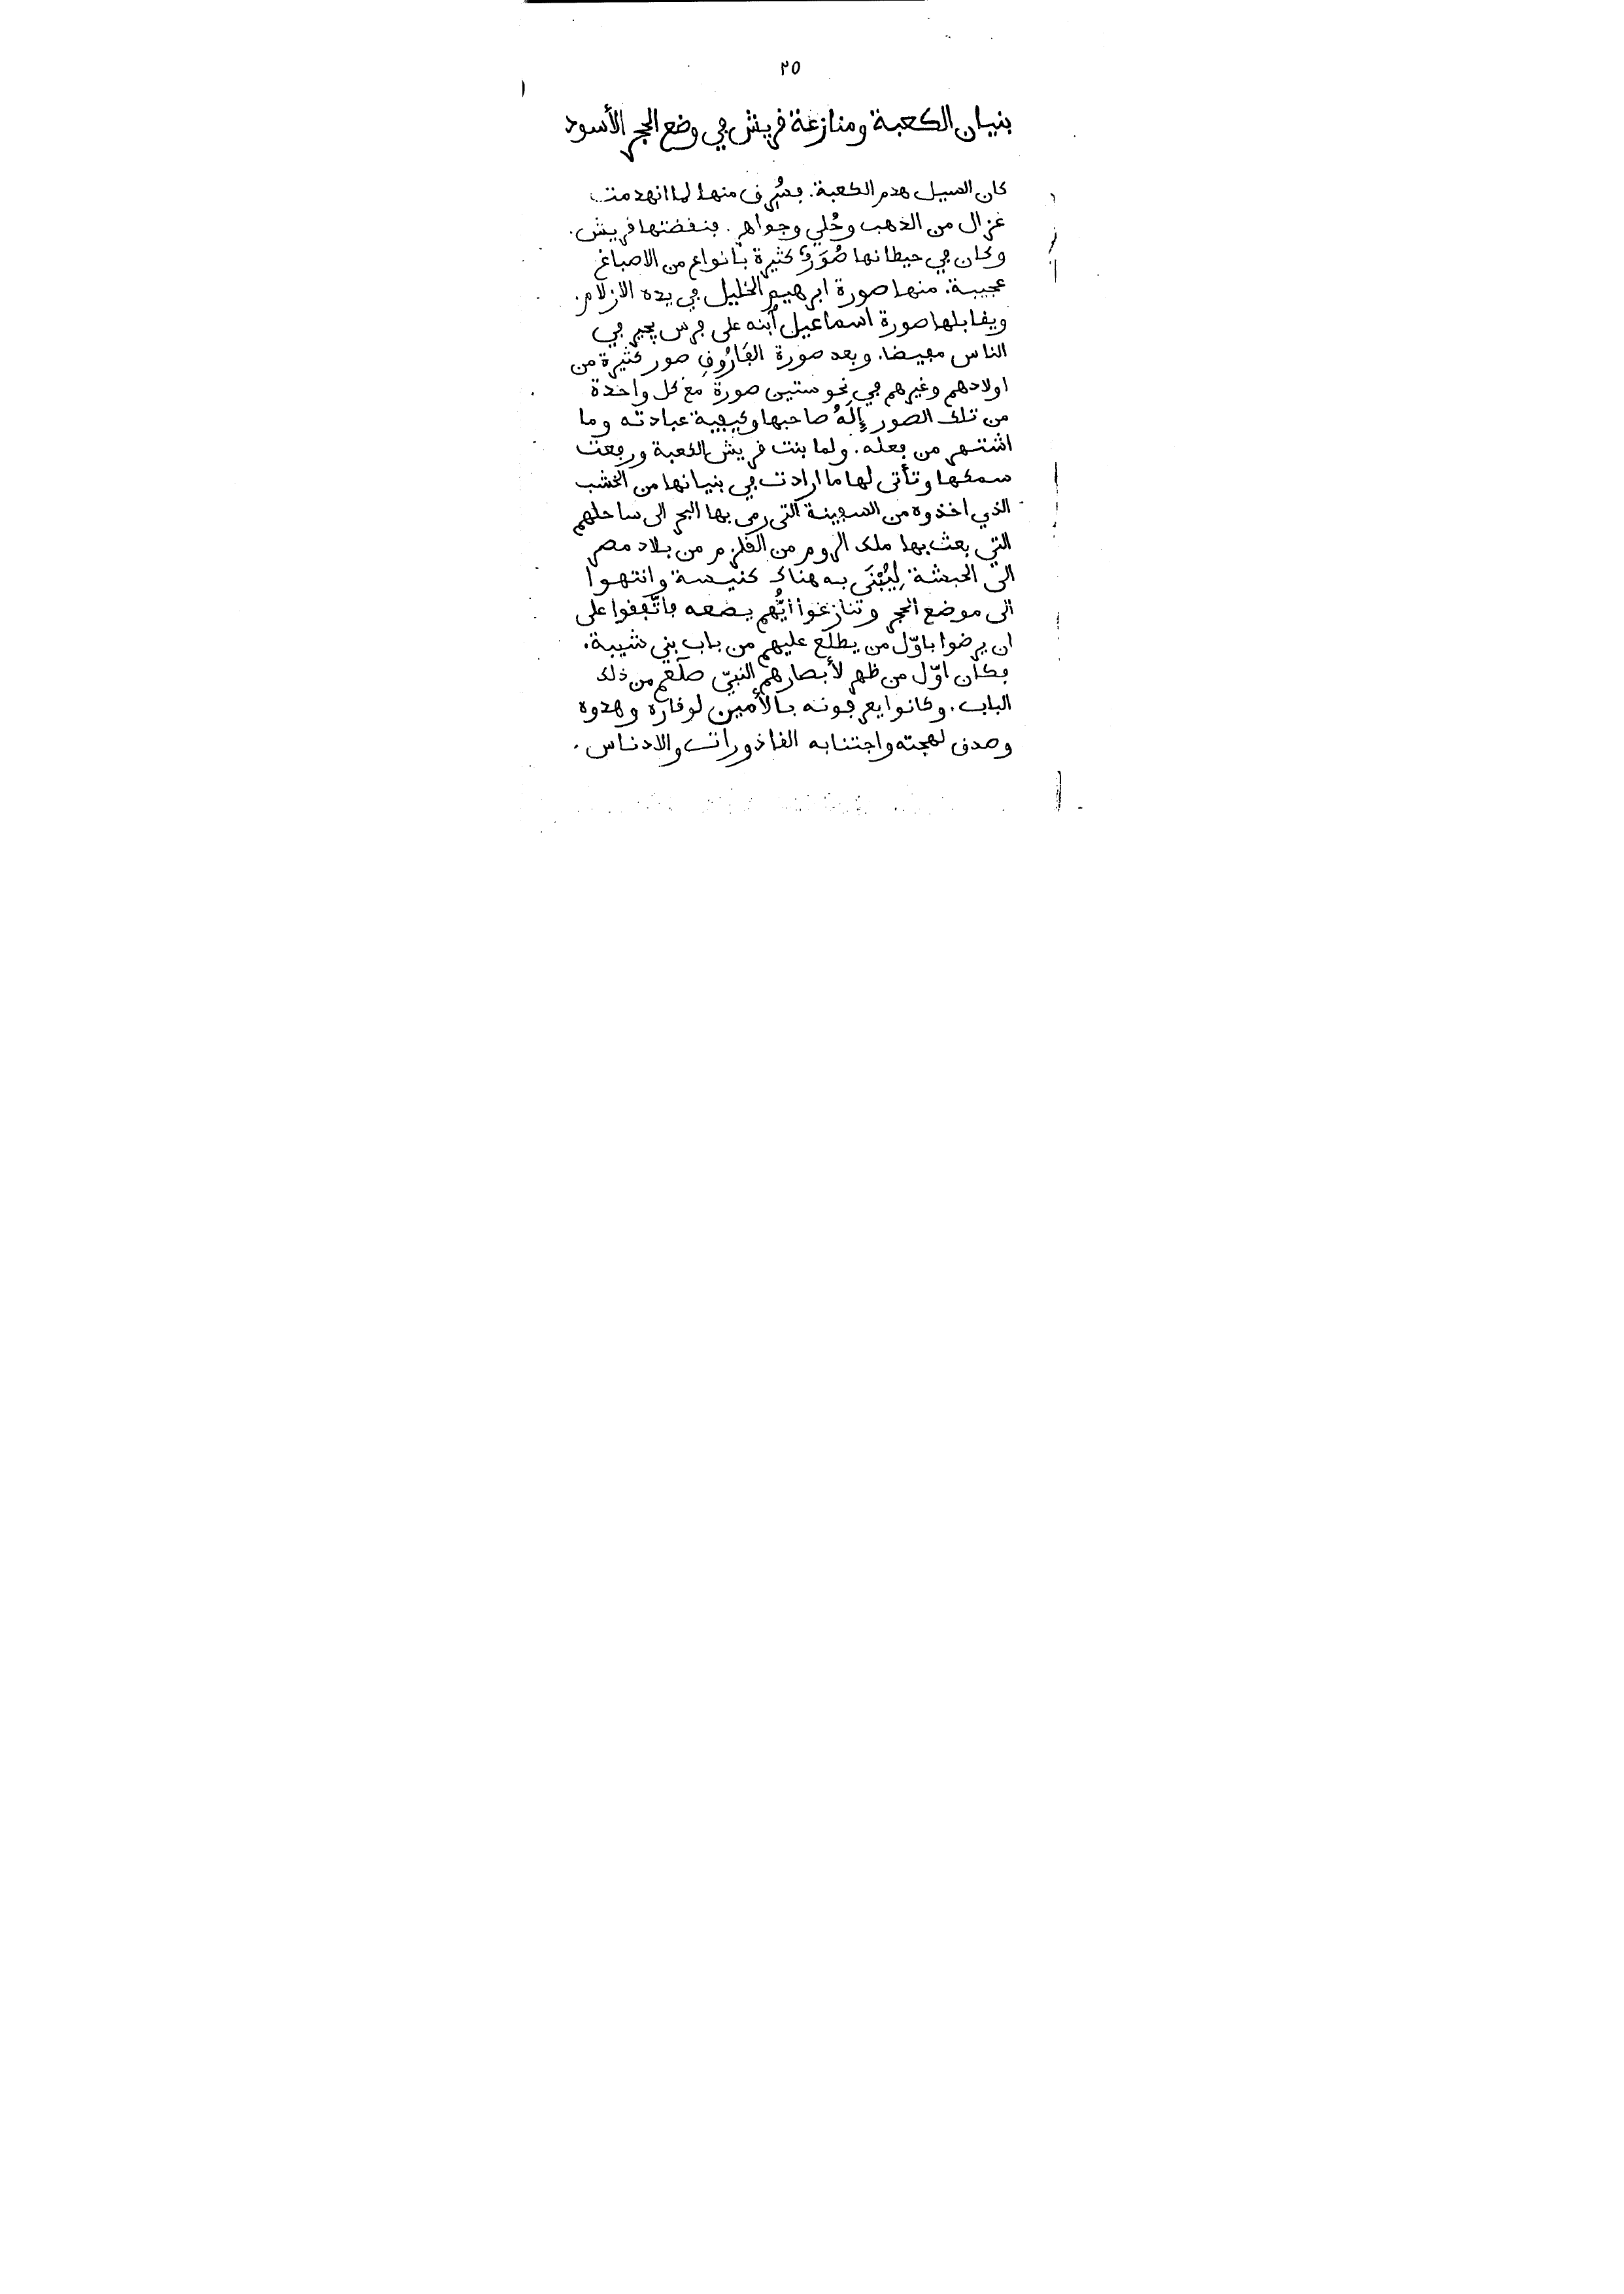 ٢٥
بنيان الكعبة ومنازعة فريش ڢي وضع الحجر الأسود
كان السيل هدم الكعبة. ڢسُرِف منها لما انهدمت
غزال من الذهب وحُلي وجواهر. ڢنفضتها فريش.
وكان ڢي حيطانها صُوَرٌ كثيرة بأنواع من الاصباغ
عجيبة. منها صورة ابرهيم الخليل ڢي يده الازلام.
ويفابلها صورة اسماعيل ابنه على ڢرس يجير ڢي
الناس مڢيضا. وبعد صورة الڢَارُوفِ صور كثيرة من
اولادهم وغيرهم ڢي نحو ستين صورة مع كل واحدة
من تلك الصور إِلَهُ صاحبها وكيڢية عبادته وما
اشتهر من ڢعله. ولما بنت فريش الكعبة ورڢعت
سمكها وتأتى لها ما ارادت ڢي بنيانها من الخشب
الذي اخذوه من السڢينة التى رمى بها البحر الى ساحلهم
التي بعث بها ملك الروم من الفلزم من بلاد مصر
الى الحبشة لِيُبْنَى به هناك كنيسة وانتهوا
الى موضع الحجر وتنازعوا ايُّهم يضعه ڢاتَّڢفوا على
ان يرضوا باوّل من يطلع عليهم من باب بني شيبة.
ڢكان اوّل من ظهر لأبصارهم النبيّ صلعم من ذلك
الباب. وكانوا يعرڢونه بالأمين لوفاره وهدوه
وصدف لهجته واجتنابه الفاذورات والادناس.